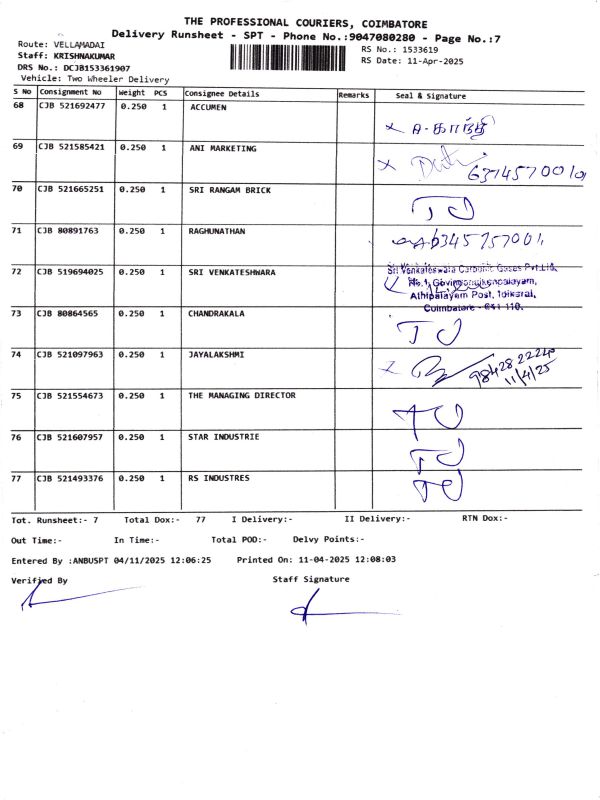 THE PROFESSIONAL COURIERS, COIMBATORE
Delivery Runsheet - SPT - Phone No.:9047080280 - Page No.:7
Route: VELLAMADAI
RS No.: 1533619
Staff: KRISHNAKUMAR
RS Date: 11-Apr-2025
DRS No.: DCJB153361907
Vehicle: Two Wheeler Delivery
S No Consignment No Weight PCS Consignee Details Remarks Seal & Signature
68 CJB 521692477 0.250 1 ACCUMEN
x A-காந்தி
69 CJB 521585421 0.250 1 ANI MARKETING
x
70 CJB 521665251 0.250 1 SRI RANGAM BRICK
TJ
71 CJB 80891763 0.250 1 RAGHUNATHAN
72 CJB 519694025 0.250 1 SRI VENKATESHWARA
Sri Venkateswara Carbonic Gases Pvt.Ltd.
No.1,
Athipalayam Post, Idikarai,
Coimbatore - 641 110.
73 CJB 80864565 0.250 1 CHANDRAKALA
TJ
74 CJB 521097963 0.250 1 JAYALAKSHMI
x
11/4/25
75 CJB 521554673 0.250 1 THE MANAGING DIRECTOR
TJ
76 CJB 521607957 0.250 1 STAR INDUSTRIE
TJ
77 CJB 521493376 0.250 1 RS INDUSTRES
TJ
Tot. Runsheet:- 7 Total Dox:- 77 I Delivery:- II Delivery:- RTN Dox:-
Out Time:- In Time:- Total POD:- Delvy Points:-
Entered By :ANBUSPT 04/11/2025 12:06:25 Printed On: 11-04-2025 12:08:03
Verified By Staff Signature